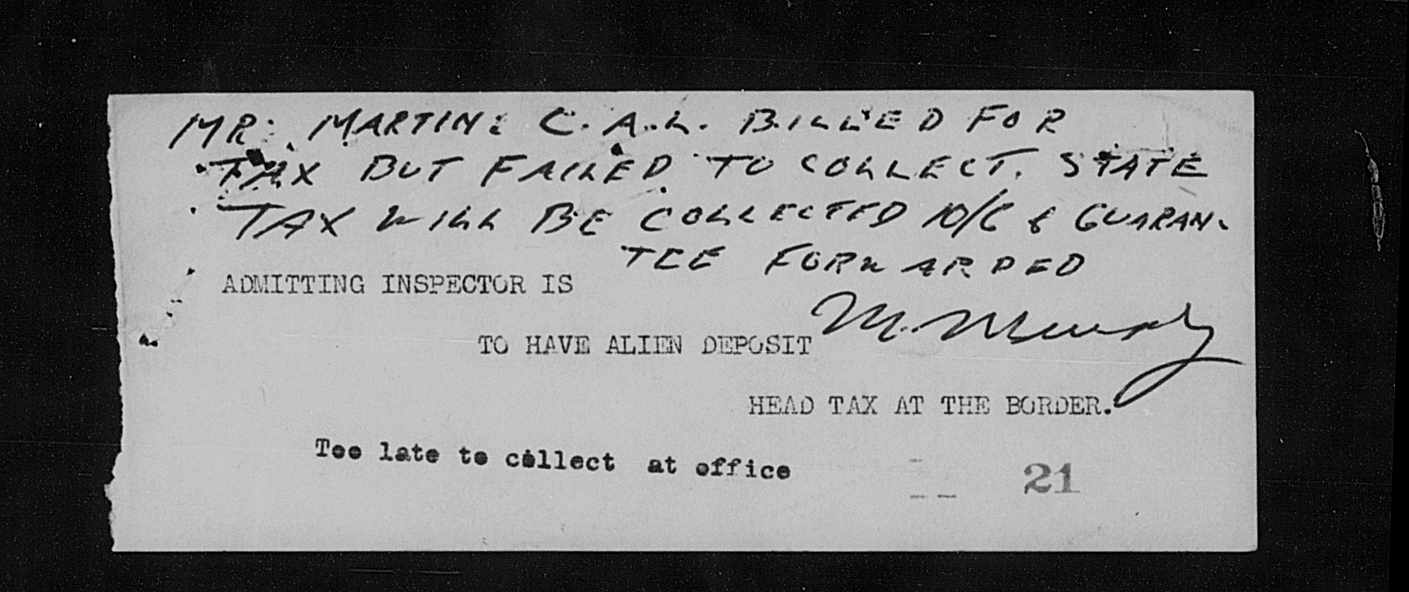 MR. MARTIN: C.A.L. BILLED FOR
TAX BUT FAILED TO COLLECT. STATE
TAX WILL BE COLLECTED 10/6 & GUARAN-
TEE FORWARDED
ADMITTING INSPECTOR IS
M. Murphy
TO HAVE ALIEN DEPOSIT
HEAD TAX AT THE BORDER.
Too late to collect at office
21